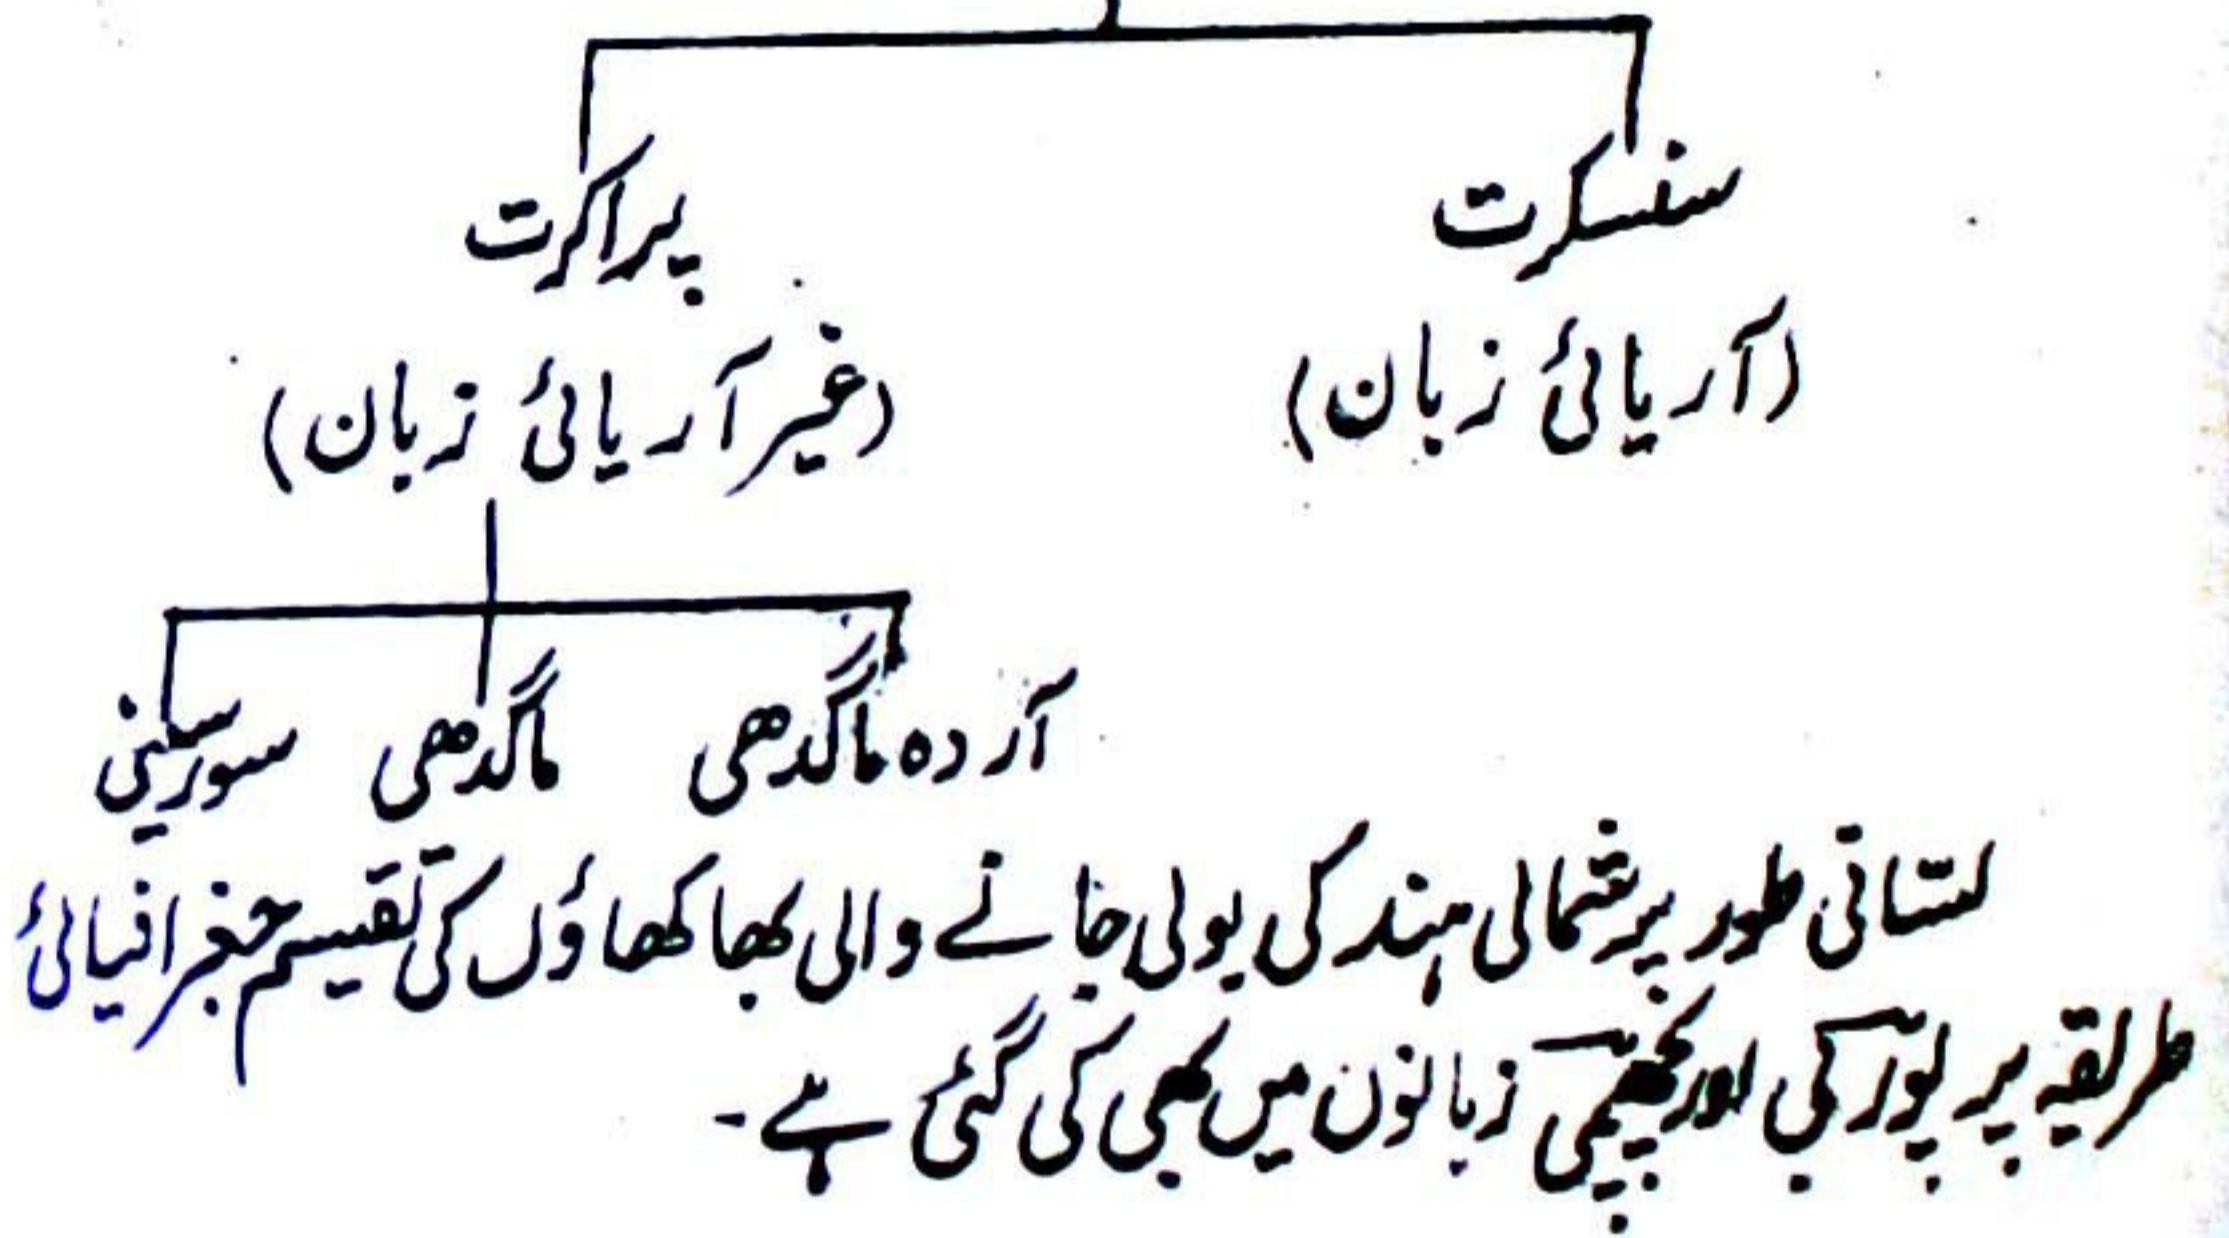 سنسکرت
پراکرت
(آریائی زبان)
(غیر آریائی زبان)
آردہ ماگدھی
ماگدھی
سورسینی
لسانی طور پر شمالی ہند کی بولی جانے والی بھاکھاؤں کی تقسیم جغرافیائی
طریقہ پر پوربی اور پچھمی زبانوں میں بھی کی گئی ہے۔